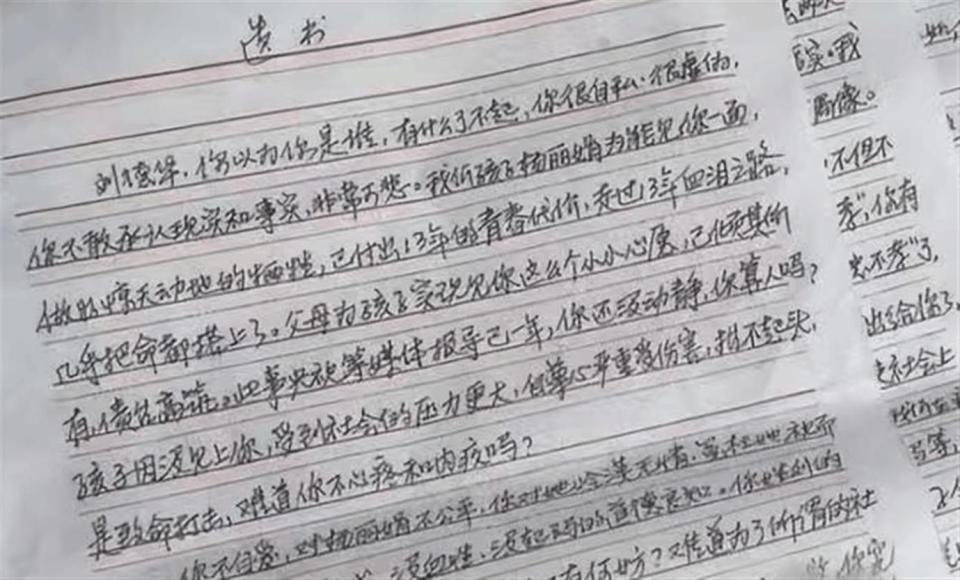 遗书
刘德华,你以为你是谁,有什么了不起,你很自私、很虚伪,
你不敢承认现实和事实,非常可悲。我们孩子杨丽娟为能见你一面,
做出惊天动地的牺牲,已付出13年的青春代价,走过13年血泪之路,
几乎把命都搭上了。父母为孩子实现见你这么个小小心愿,已倾其所
有,债台高筑。此事央视等媒体报导已一年,你还没动静,你算人吗?
孩子因没见上你,受到社会的压力更大,自尊心严重受伤害,抬不起头,
是致命打击,难道你不心疼和内疚吗?
你不自爱,对杨丽娟不公平,你对她冷漠无情,
没血性、没起码的道德良知。你
有何妨?难道为了所谓的社
实。我
局像。
不但不
孝",你有
不孝"了,
出给你了。
社会上
等,